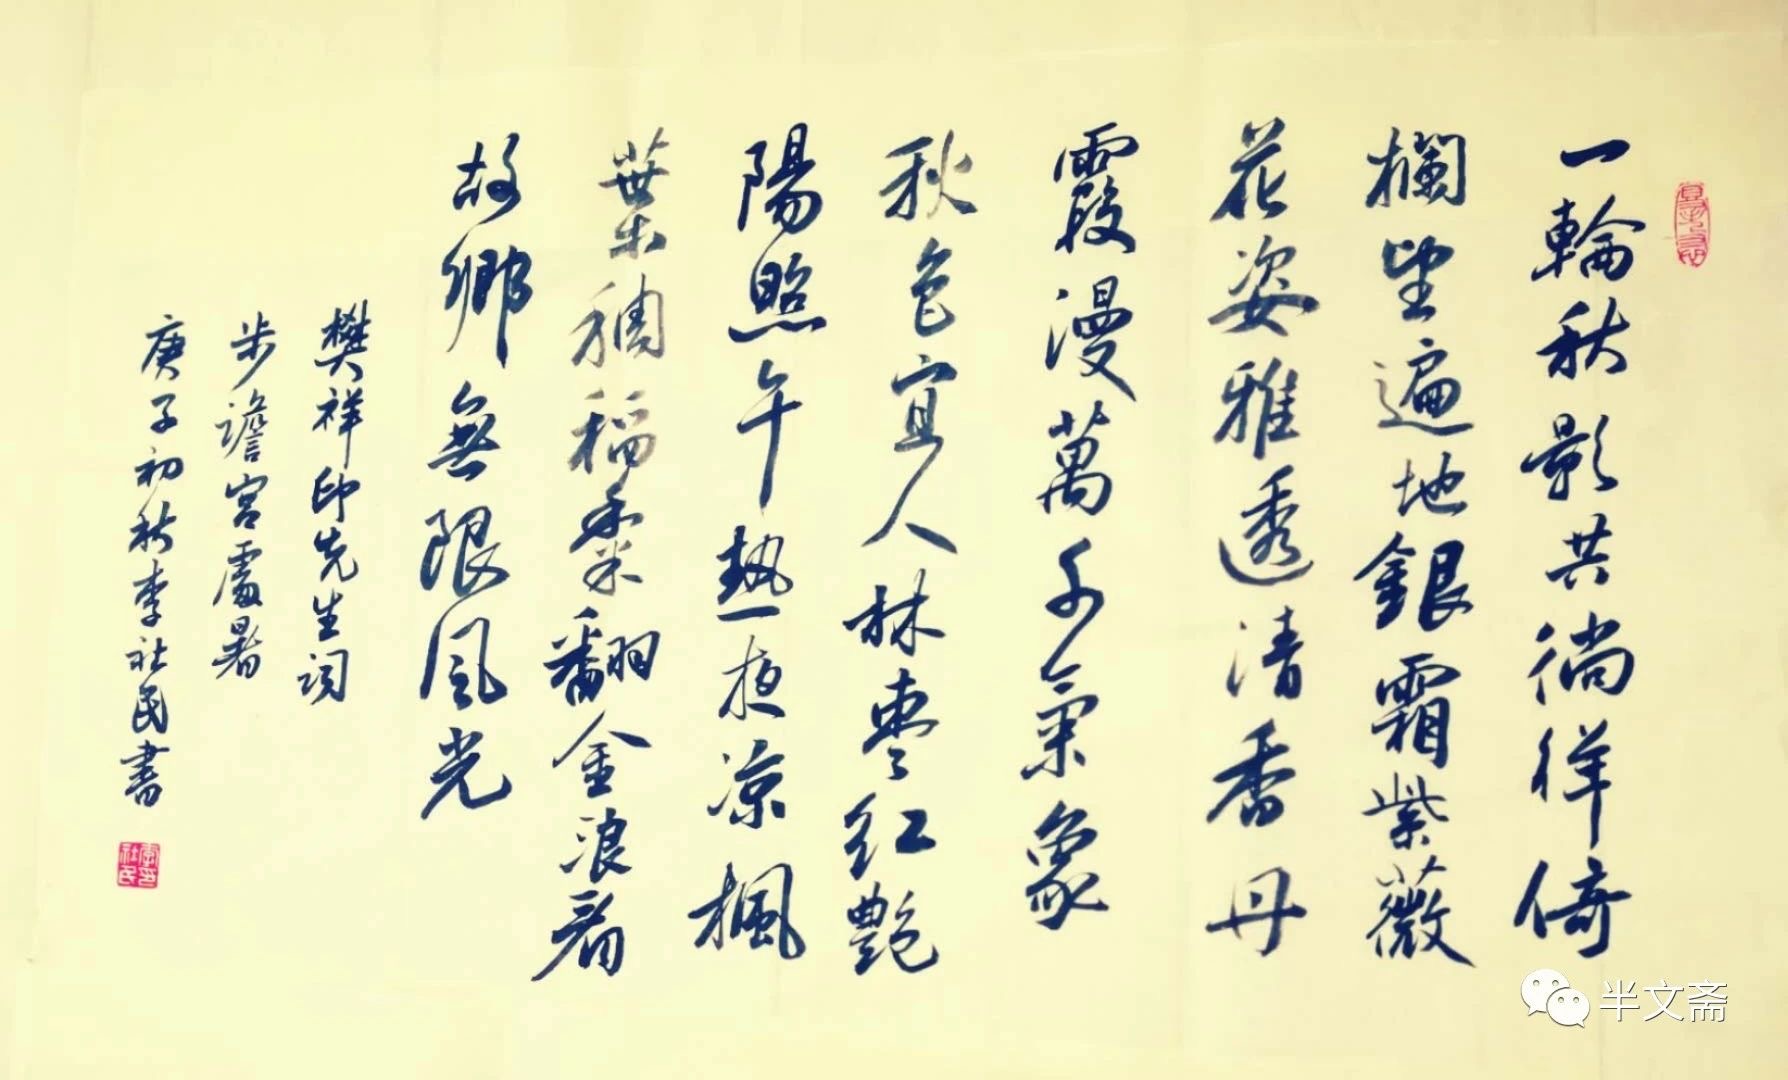 一輪秋影共徜徉倚
欄望遍地銀霜紫薇
花姿雅透清香丹
霞漫萬千氣象
秋色宜人林棗紅艷
陽照午熱一夜涼楓
葉稠稻粟翻金浪看
故鄉無限風光
樊祥印先生詞
步蟾宮處暑
庚子初秋李社民書
李印社民
半文斋